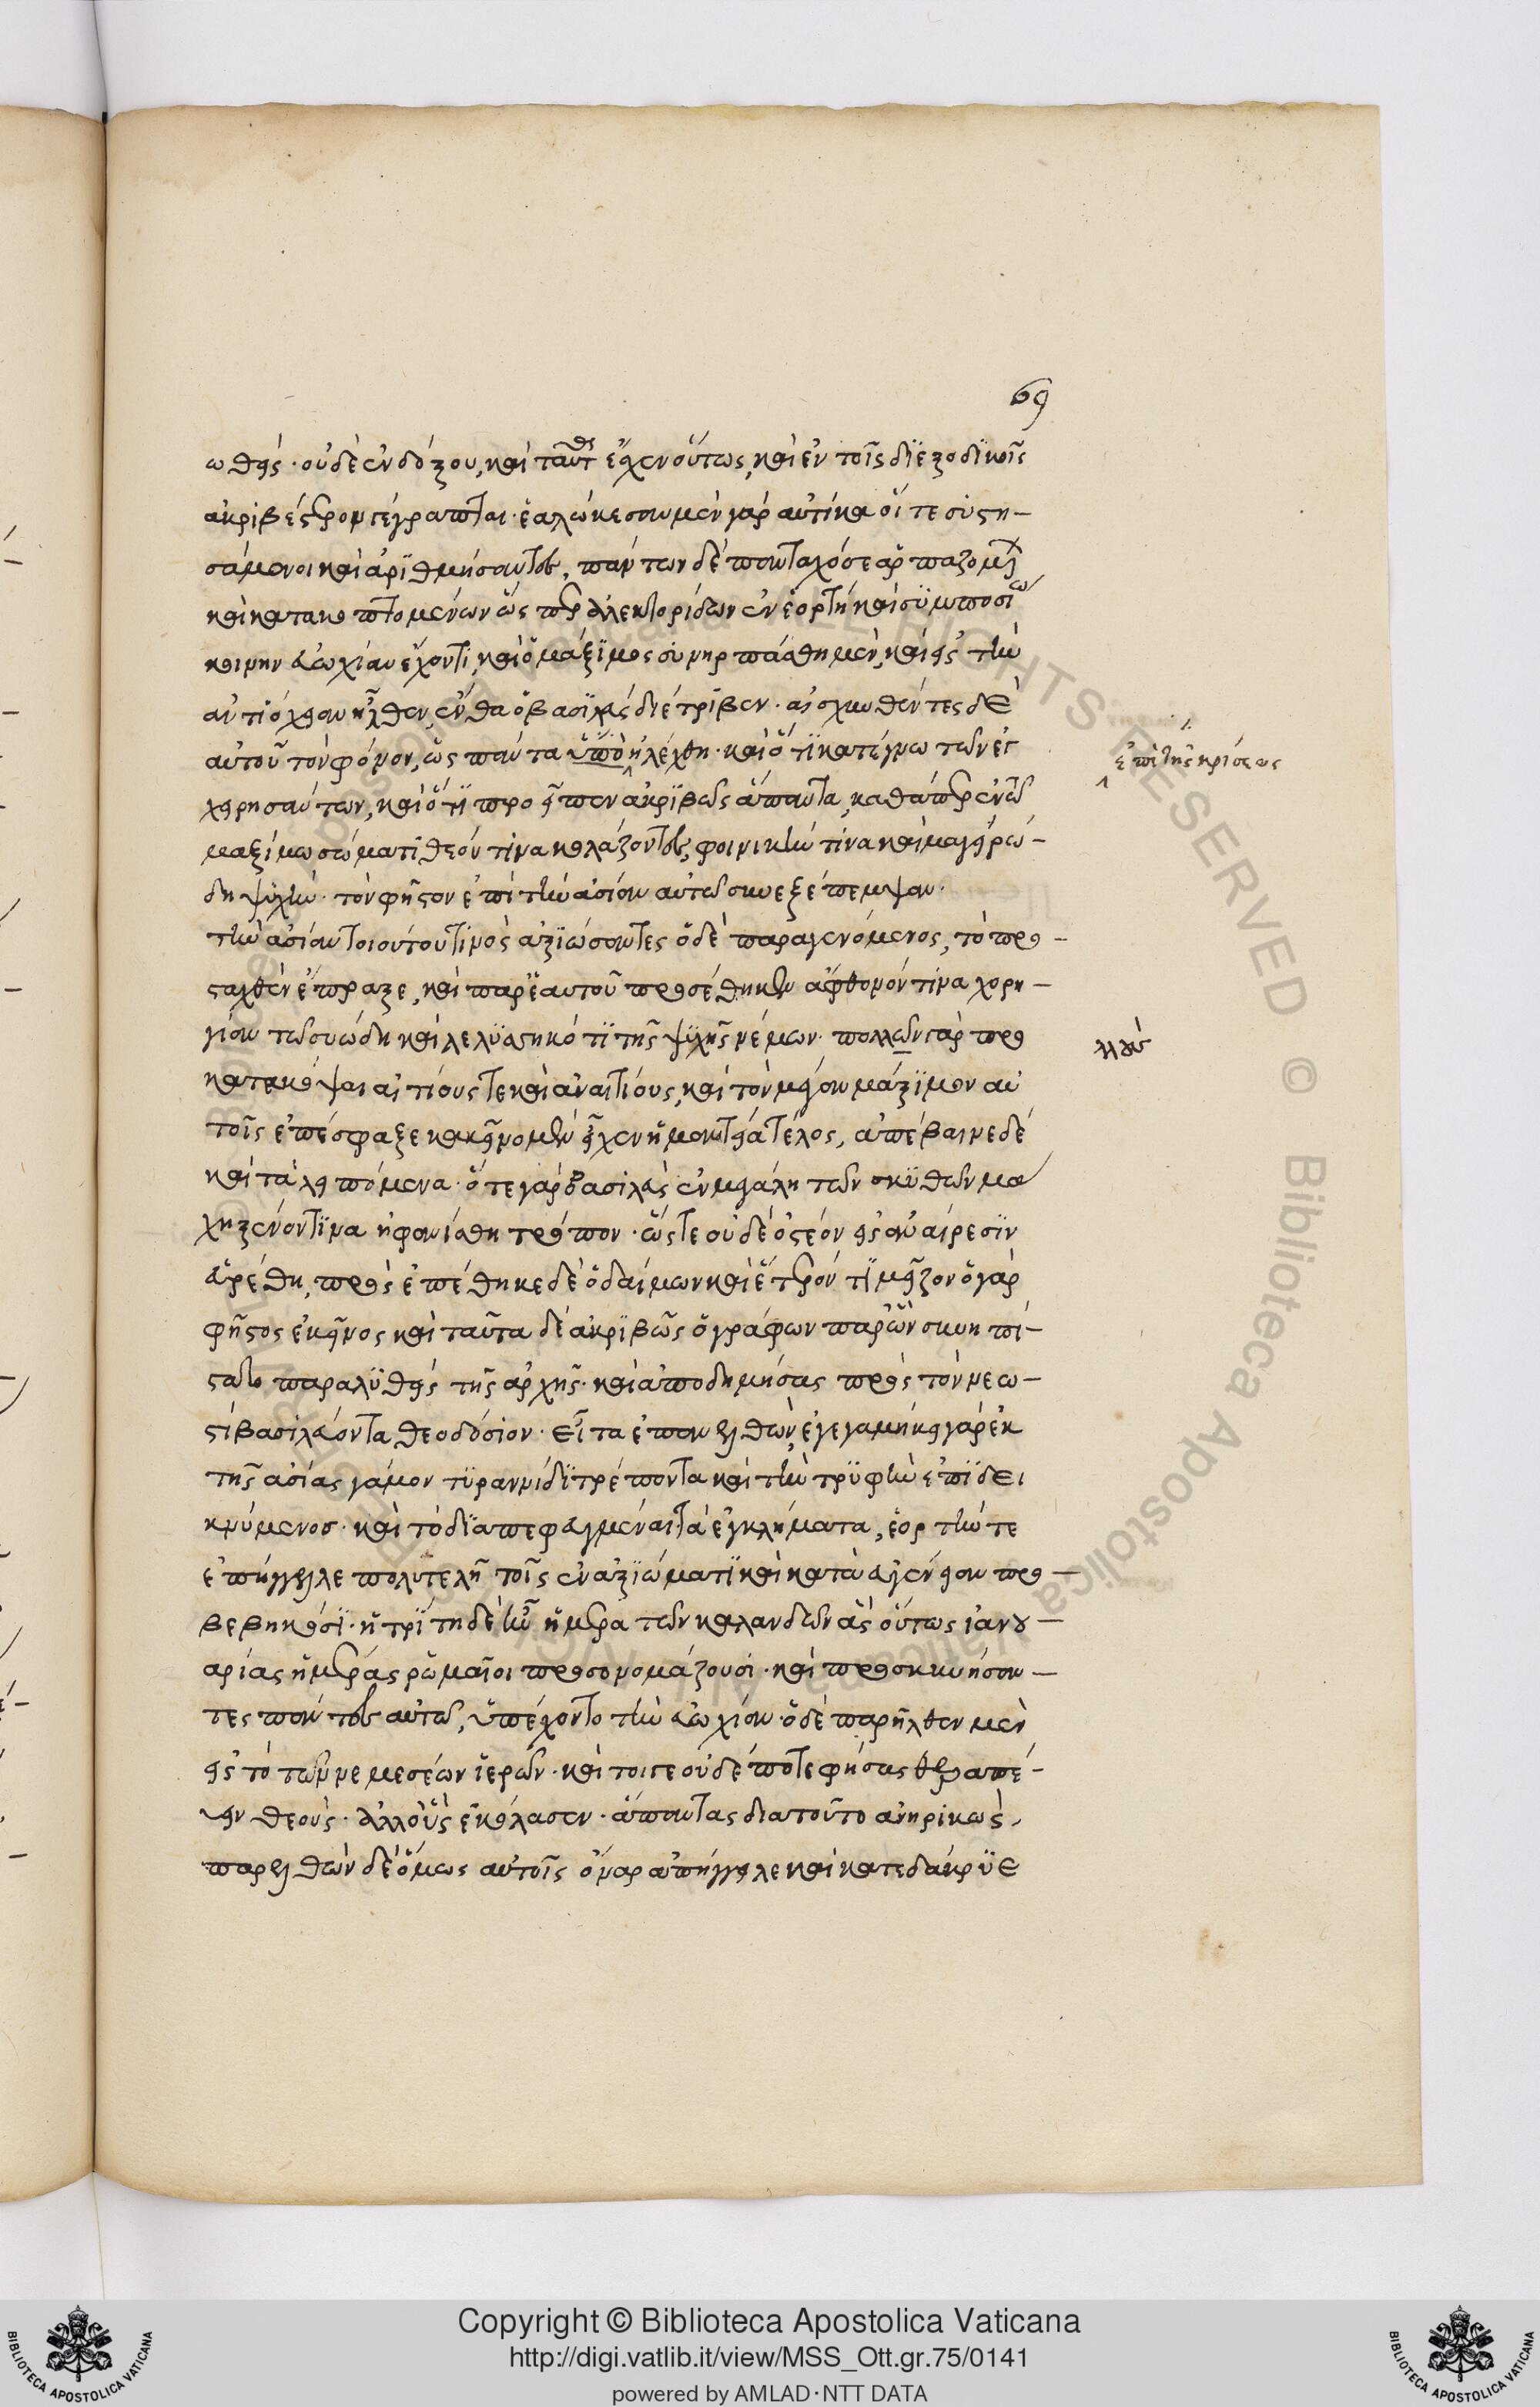 69
ωθείς· οὐδὲ ἐνδόξου, καὶ ταῦτ εἶχεν οὕτως, καὶ ἐν τοῖς διεξοδικοῖς
ἀκριβέστερον γέγραπται· ἑαλώκεσαν μὲν γὰρ αὐτίκα οἵ τε συστη-
σάμενοι καὶ ἀριθμήσαντες, πάντων δὲ πανταχόσε ἁρπαζομέν
καὶ κατακοπτομένων ὥσπερ ἀλεκτορίδων ἐν ἑορτῇ καὶ συμποσίω
κοινὴν εὐωχίαν ἔχοντι, καὶ ὁ μάξιμος συνηρπάσθη μὲν, καὶ εἰς τὴν
ἀντιόχειαν ἦλθεν, ἔνθα ὁ βασιλεὺς διέτριβεν· αἰσχυνθέντες δὲ
αὐτοῦ τὸν φόνον, ὡς πάντα ὑπὸ ἠλέχθη· καὶ ὅτι κατέγνω τῶν ἐγ
ἐπὶ τῆς κρίσεως
χειρησάντων, καὶ ὅτι προεῖπεν ἀκριβῶς ἅπαντα, καθάπερ ἐν τῶ
μαξίμω σώματι θεόν τινα κολάζοντες, φοινικήν τινα καὶ μαγειρώ-
δη ψυχὴν· τὸν φῆστον ἐπὶ τὴν ἀσίαν αὐτῶ συνεξέπεμψαν·
τὴν ἀσίαν τοιούτου τινὸς ἀξιώσαντες ὁ δὲ παραγενόμενος, τὸ προ-
σταχθὲν ἔπραξε, καὶ παρ' ἑαυτοῦ προσέθηκεν ἄφθονόν τινα χορη-
γίαν τῶ συώδη καὶ λελυσσηκότι τῆς ψυχῆς νέμων· πολλῶν γὰρ προ
λλοὺς
κατακόψαι αἰτίους τε καὶ ἀναιτίους, καὶ τὸν μέγαν μάξιμον αὐ
τοῖς ἐπέσφαξε κἀκεῖνο μὲν εἶχεν ἡ μαντεία τέλος, ἀπέβαινε δέ
καὶ τὰ λειπόμενα· ὅ τε γὰρ βασιλεὺς ἐν μεγάλη τῶν σκυθῶν μα
χη ξένον τινα ἠφανίσθη τρόπον· ὥστε οὐδὲ ὀστέον εἰς ἀναίρεσιν
εὑρέθη, προσεπέθηκε δὲ ὁ δαίμων καὶ ἕτερόν τι μεῖζον ὁ γὰρ
φῆστος ἐκεῖνος καὶ ταῦτα δὲ ἀκριβῶς ὁ γράφων παρὼν συνηπί-
στατο παραλυθεὶς τῆς ἀρχῆς· καὶ ἀποδημήσας πρὸς τὸν νεω-
στὶ βασιλεύοντα θεοδόσιον· εἶτα ἐπανελθὼν, ἐγεγαμήκει γὰρ ἐκ
τῆς ἀσίας γάμον τυραννίδι τρέποντα καὶ τὴν τρυφὴν ἐπιδει
κνύμενος· καὶ τὸ διαπεφευγμέναι τὰ ἐγκλήματα, ἑορτήν τε
ἐπήγγειλε πολυτελῆ τοῖς ἐν ἀξιώματι καὶ κατὰ εὐγένειαν προ-
βεβηκόσι· ἡ τρίτη δὲ ἦν ἡμέρα τῶν καλανδῶν ἃς οὕτως ἰανου-
αρίας ἡμέρας ῥωμαῖοι προσονομάζουσι· καὶ προσκυνήσαν-
τες πάντες αὐτῶ, ὑπέχοντο τὴν εὐωχίαν· ὁ δὲ παρῆλθεν μὲν
εἰς τὸ τῶν νεμεσέων ἱερῶν· καί τοιγε οὐδέποτε φήσας θεραπεύ-
ειν θεοὺς· ἀλλ' οὓς ἐκόλασεν· ἅπαντας διατοῦτο ἀνηρικώς,
παρελθὼν δὲ ὅμως αὐτοῖς ὄναρ ἀπήγγειλε καὶ κατεδάκρυε
Copyright © Biblioteca Apostolica Vaticana
http://digi.vatlib.it/view/MSS_Ott.gr.75/0141
powered by AMLAD·NTT DATA